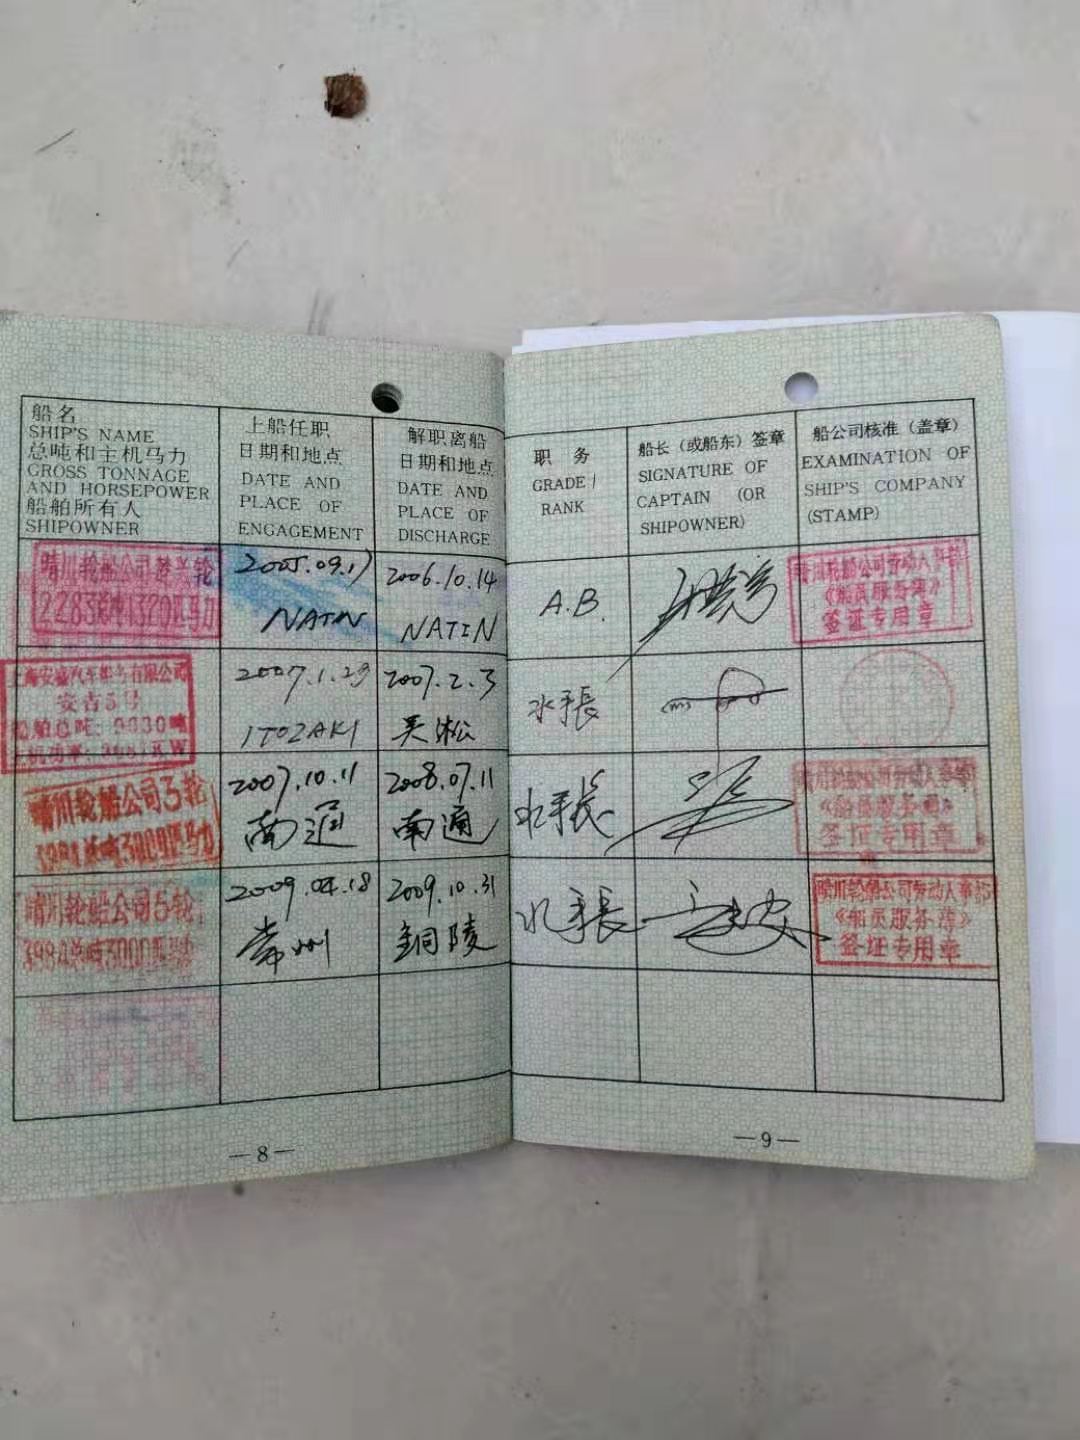 船名
SHIP'S NAME
总吨和主机马力
GROSS TONNAGE
AND HORSEPOWER
船舶所有人
SHIPOWNER
上船任职
日期和地点
DATE AND
PLACE OF
ENGAGEMENT
解职离船
日期和地点
DATE AND
PLACE OF
DISCHARGE
职务
GRADE/
RANK
船长（或船东）签章
SIGNATURE OF
CAPTAIN (OR
SHIPOWNER)
船公司核准（盖章）
EXAMINATION OF
SHIP'S COMPANY
(STAMP)
晴川轮船公司 轮
2283总吨1320匹马力
2005.09.17
NATIN
2006.10.14
NATIN
A.B.
晴川轮船公司劳动人事部
《船员服务簿》
签证专用章
上海安盛汽车船务有限公司
安吉5号
船舶总吨:
主机功率: KW
2007.1.23
ITOZAKI
2007.2.3
吴淞
水手長
晴川轮船公司 轮
3984总吨3000匹马力
2007.10.11
南通
2008.07.11
南通
水手长
晴川轮船公司劳动人事部
《船员服务簿》
签证专用章
晴川轮船公司 轮
3984总吨3000匹马力
2009.04.18
常州
2009.10.31
銅陵
水手長
晴川轮船公司劳动人事部
《船员服务簿》
签证专用章
—8—
—9—